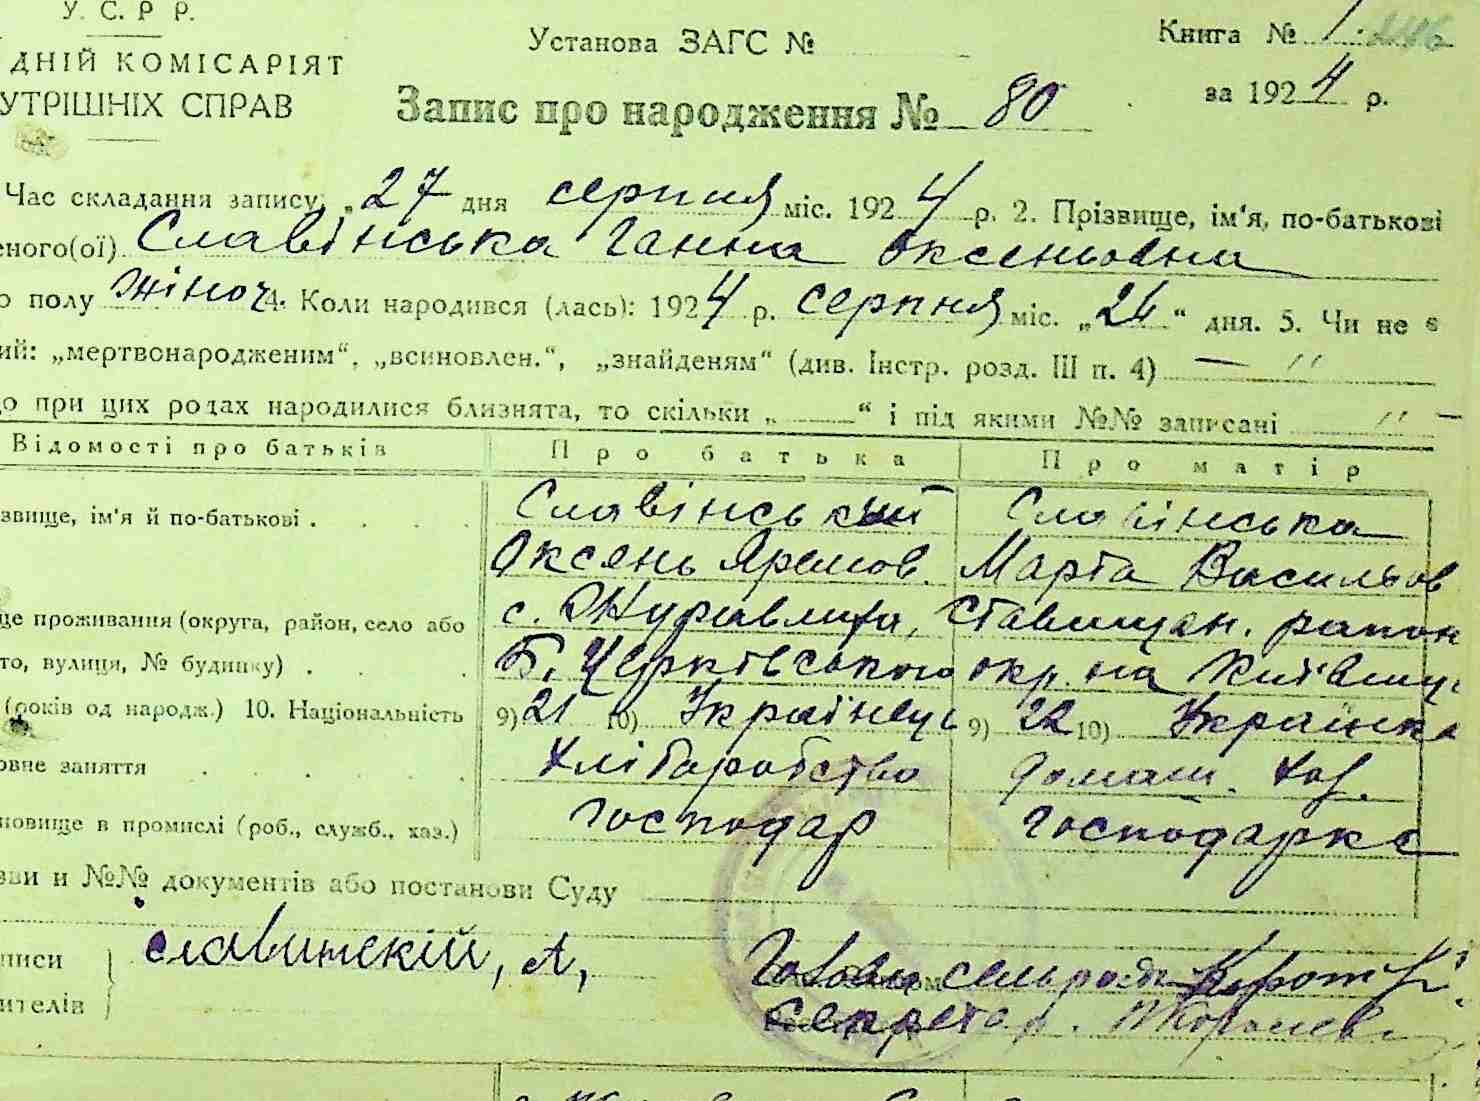 У. С. Р Р.
ДНІЙ КОМІСАРІЯТ
УТРІШНІХ СПРАВ
Установа ЗАГС №
Книга № 1.
Запис про народження № 80
за 1924 р.
Час складання запису: „27 дня серпня міс. 1924 р. 2. Прізвище, ім'я, по-батькові
еного(ої) Славінська Ганна Оксеньовна
о полу жіноч. 4. Коли народився (лась): 1924 р. серпня міс. „26“ дня. 5. Чи не є
ий: „мертвонародженим“, „всиновлен.“, „знайденям“ (див. Інстр. розд. III п. 4) — "
о при цих родах народилися близнята, то скільки „ — “ і під якими №№ записані " —
Відомості про батьків Про батька Про матір
звище, ім'я й по-батькові . Славінський Славінська
Оксень Яремов. Марта Васильов
це проживання (округа, район, село або с. Журавлиха, Ставищан. район
то, вулиця, № будинку) . Б. Церківського окр. на Київщи
(років од народж.) 10. Національність 9) 21 10) Українець 9) 22 10) Українка
овне заняття хліборобство домаш. хоз.
новище в промислі (роб., служб., хаз.) господар господарка
зви и №№ документів або постанови Суду
писи Славинскій, А,
ителів
Голова сельради
Секретар.